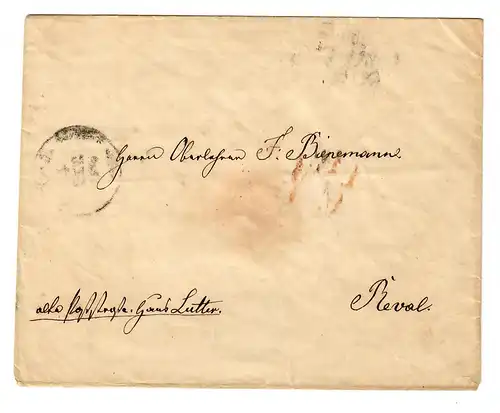 Herrn Oberlehrer F. Bienemann.
alte Poststraße. Haus Lutter.
Reval.